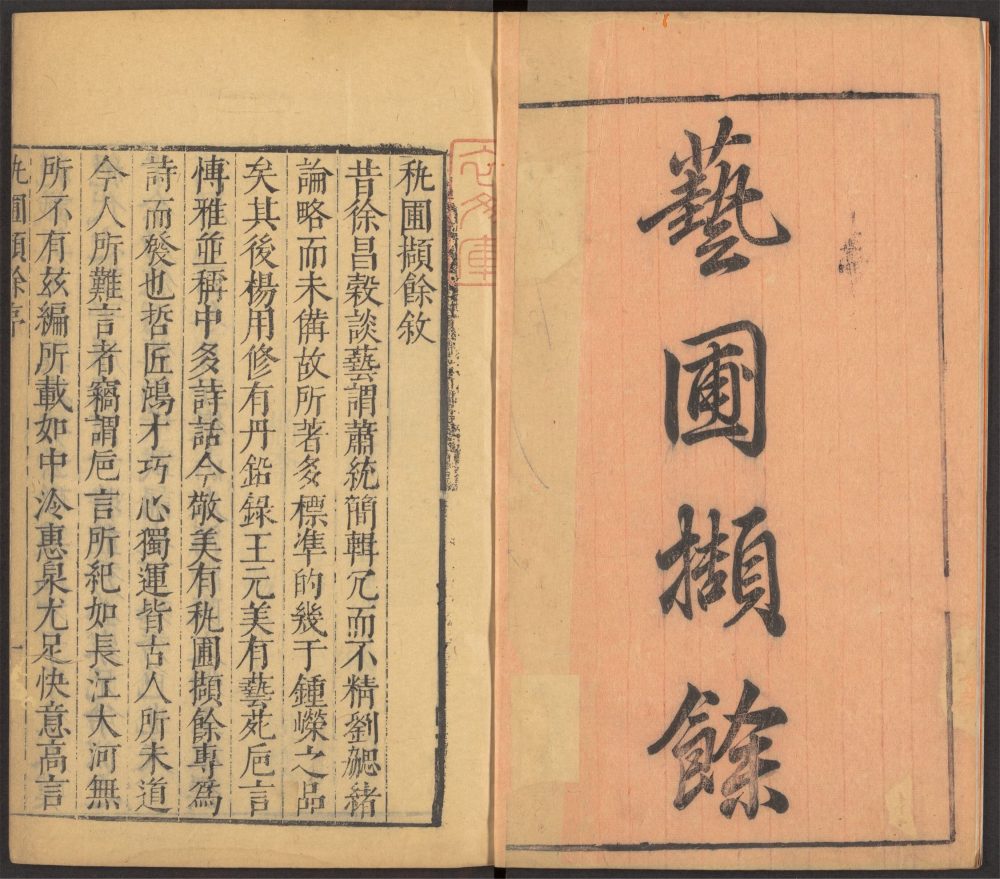 藝圃擷餘
秇圃擷餘敘
昔徐昌榖談藝謂蕭統簡輯冗而不精劉勰緒
論略而未備故所著多標準的幾于鍾嶸之品
矣其後楊用修有丹鉛錄王元美有藝苑巵言
博雅並稱中多詩話今敬美有秇圃擷餘專爲
詩而發也哲匠鴻才巧心獨運皆古人所未道
今人所難言者竊謂巵言所紀如長江大河無
所不有茲編所載如中泠惠泉尤足快意高言
秇圃擷餘序 一